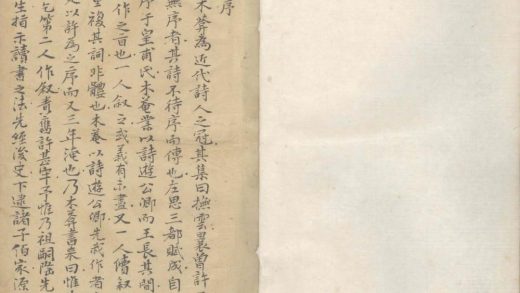 序
木葊為近代詩人之冠其集曰撫雲裏曾許
無序者其詩不待序而傳也左思三都賦成自
序于皇甫氏木菴業以詩遊公卿而王長其間
作之旨也一人叙之或義有未盡又一人續叙
複其詞非體也木菴以詩遊公卿先我作者
以許為之序而又三年淹也乃木葊書來曰惟
第二人作叙者舊許甚牢予惟乃祖嗣先
生指示讀書之法先經後史下逮諸子伯家源